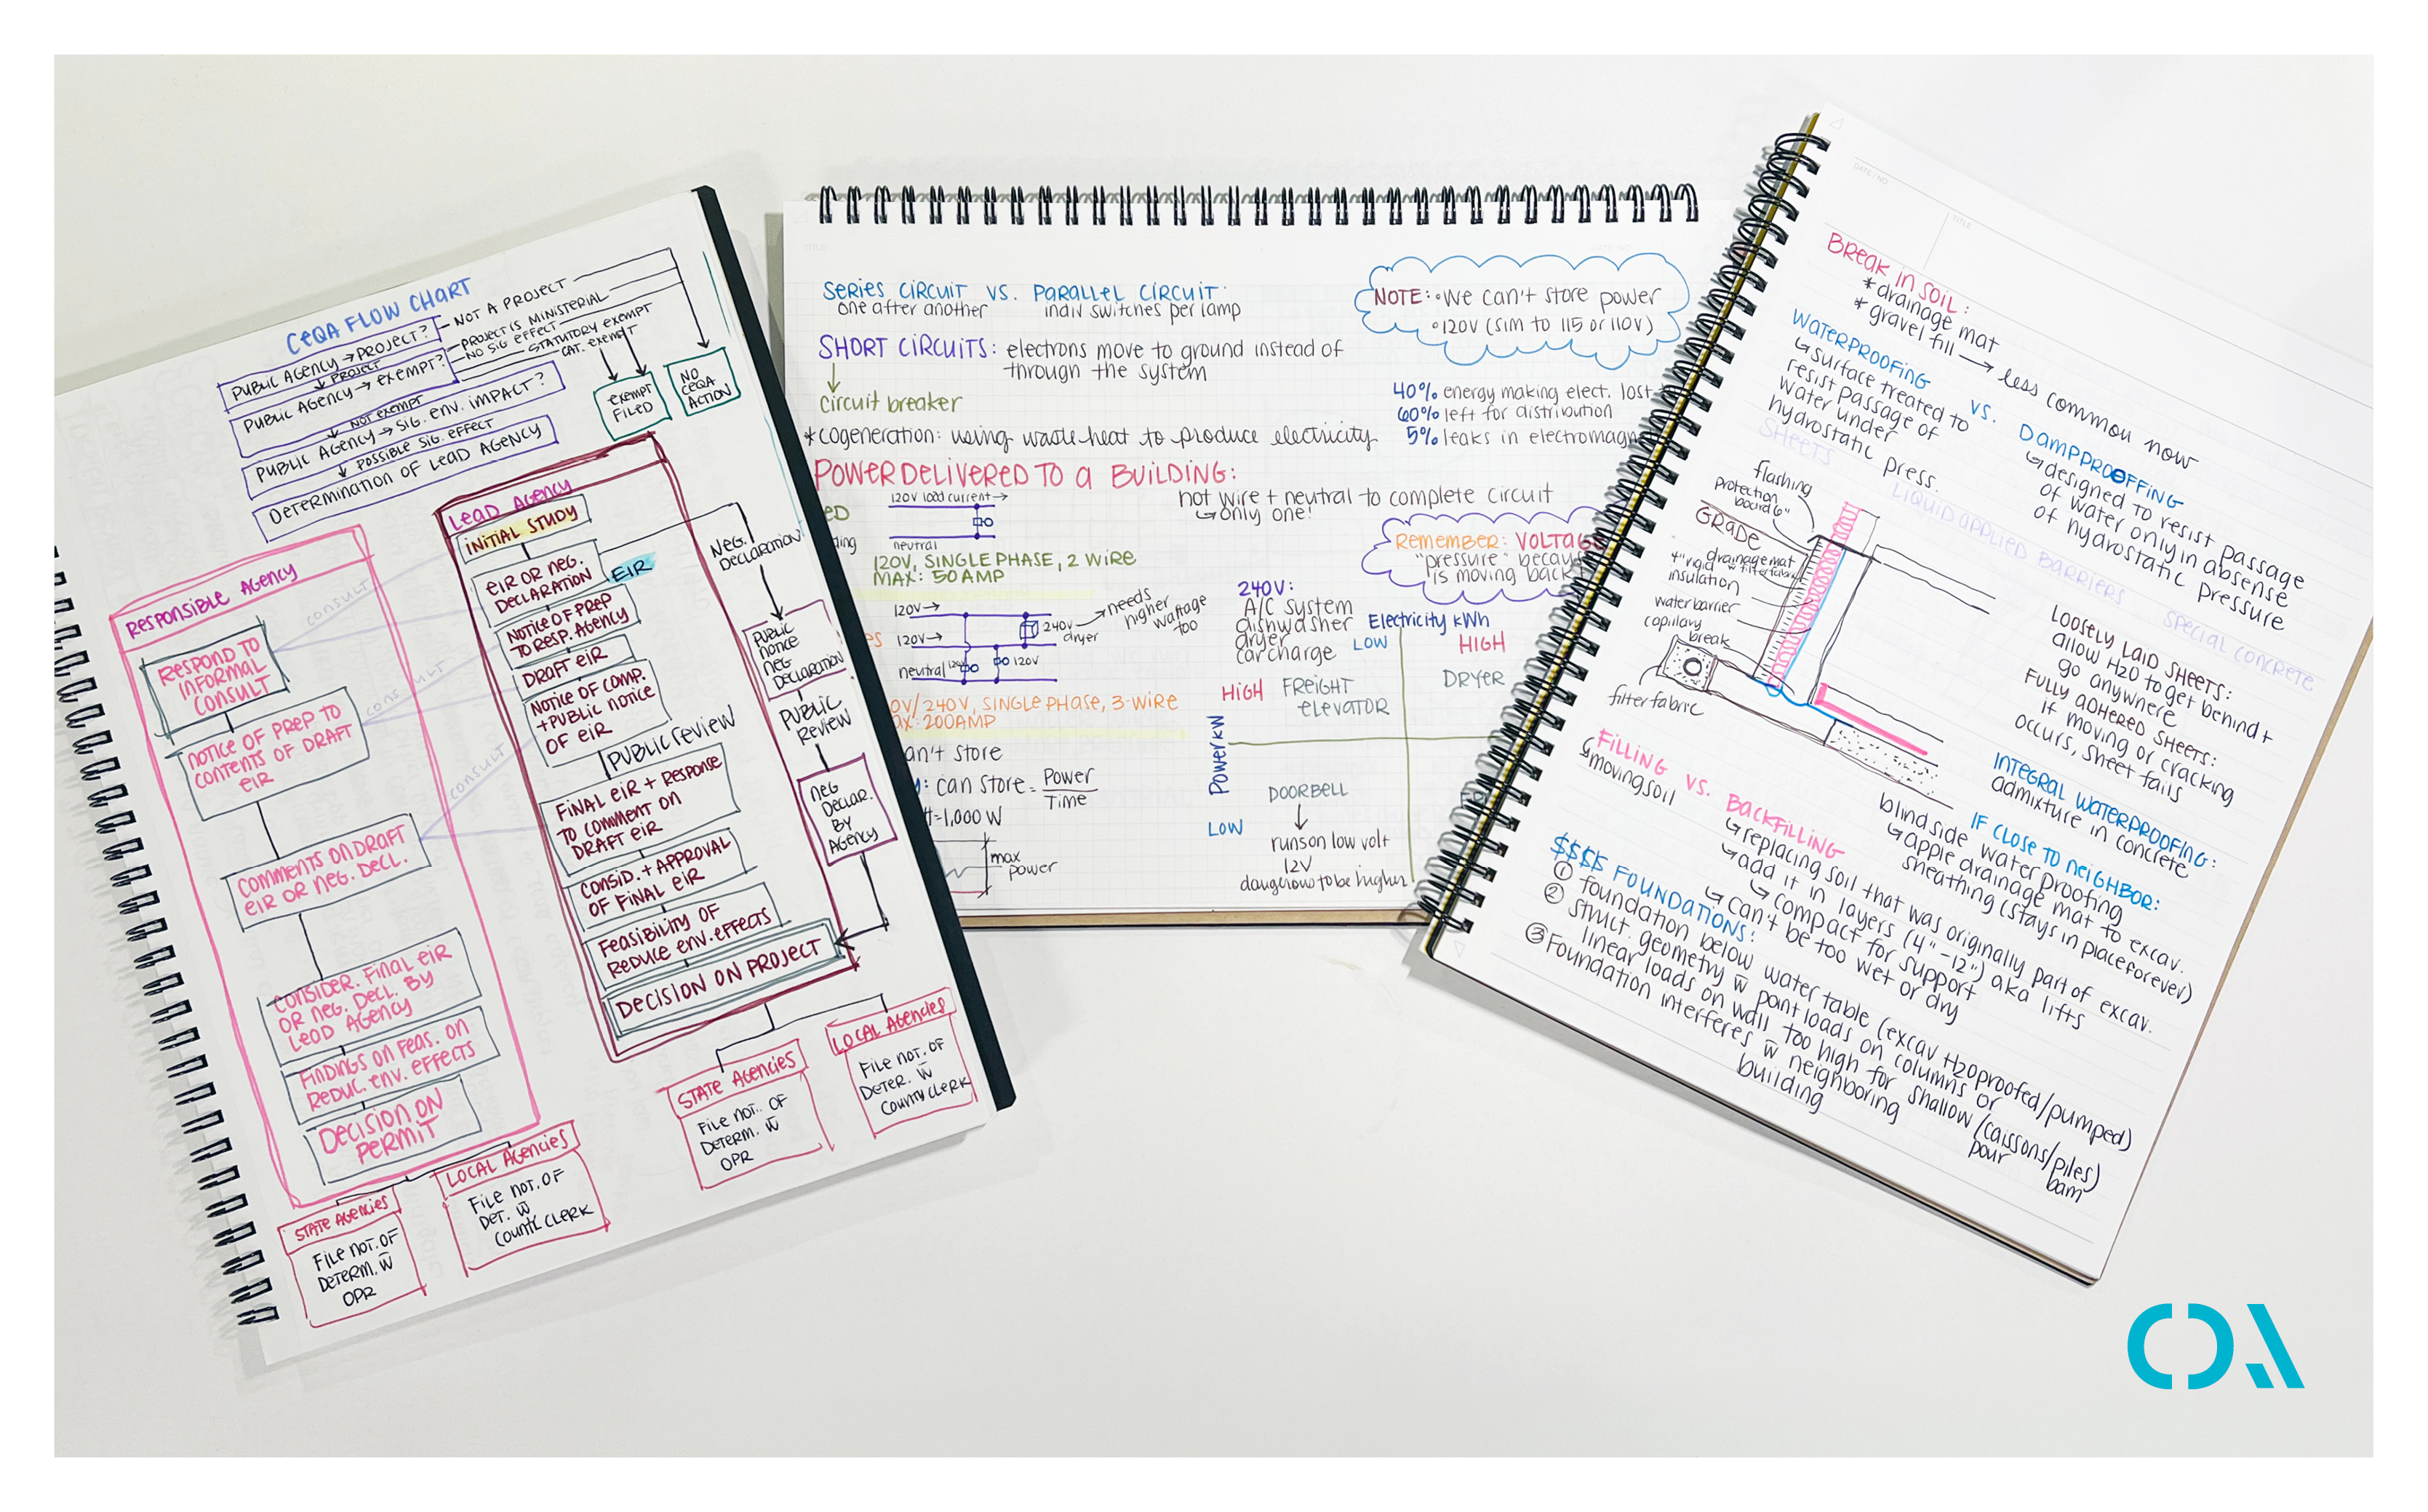 CEQA FLOW CHART
PUBLIC AGENCY → PROJECT?
NOT A PROJECT
↓ PROJECT
PUBLIC AGENCY → EXEMPT?
PROJECT IS MINISTERIAL
NO SIG EFFECT
STATUTORY EXEMPT
CAT. EXEMPT
↓ NOT EXEMPT
PUBLIC AGENCY → SIG. ENV. IMPACT?
↓ POSSIBLE SIG. EFFECT
DETERMINATION OF LEAD AGENCY
EXEMPT
FILED
NO
CEQA
ACTION
RESPONSIBLE AGENCY
RESPOND TO
INFORMAL
CONSULT
NOTICE OF PREP TO
CONTENTS OF DRAFT
EIR
COMMENTS ON DRAFT
EIR OR NEG. DECL.
CONSIDER. FINAL EIR
OR NEG. DECL. BY
LEAD AGENCY
FINDINGS ON FEAS. ON
REDUC. ENV. EFFECTS
DECISION ON
PERMIT
CONSULT
CONSULT
CONSULT
STATE AGENCIES
FILE NOT. OF
DETERM. W
OPR
LOCAL AGENCIES
FILE NOT. OF
DET. W
COUNTY CLERK
LEAD AGENCY
INITIAL STUDY
EIR OR NEG.
DECLARATION
EIR
NOTICE OF PREP
TO RESP. AGENCY
DRAFT EIR
NOTICE OF COMP.
+ PUBLIC NOTICE
OF EIR
PUBLIC REVIEW
FINAL EIR + RESPONSE
TO COMMENT ON
DRAFT EIR
CONSID. + APPROVAL
OF FINAL EIR
FEASIBILITY OF
REDUCE ENV. EFFECTS
DECISION ON PROJECT
NEG.
DECLARATION
PUBLIC
NOTICE
NEG
DECLARATION
PUBLIC
REVIEW
NEG
DECLAR.
BY
AGENCY
STATE AGENCIES
FILE NOT. OF
DETERM. W
OPR
LOCAL AGENCIES
FILE NOT. OF
DETER. W
COUNTY CLERK
TITLE
SERIES CIRCUIT VS. PARALLEL CIRCUIT:
one after another
indiv switches per lamp
SHORT CIRCUITS: electrons move to ground instead of
through the system
↓
circuit breaker
*cogeneration: using waste heat to produce electricity
NOTE: •We can't store power
•120V (sim to 115 or 110V)
40% energy making elect. lost
60% left for distribution
5% leaks in electromagn
POWER DELIVERED TO A BUILDING:
ED
ding
120V load current→
neutral
120V, SINGLE PHASE, 2 WIRE
MAX: 50 AMP
hot wire + neutral to complete circuit
↳only one!
REMEMBER: VOLTAGE
"pressure" becau
is moving back +
es
120V→
120V→
neutral
120V
120V
240V
dryer
needs
higher
wattage
too
0V/240V, SINGLE PHASE, 3-WIRE
ax: 200AMP
240V:
A/C system
dishwasher
dryer
car charge
Electricity kWh
LOW
HIGH
Power kW
HIGH
LOW
FREIGHT
ELEVATOR
DRYER
DOORBELL
↓
runs on low volt
12V
dangerous to be higher
an't store
: can store = Power
Time
t=1,000 W
max
power
DATE / NO.
TITLE
BREAK IN SOIL:
*drainage mat
*gravel fill → less common now
WATERPROOFING VS. DAMPPROOFFING
↳surface treated to
resist passage of
water under
hydrostatic press.
↳designed to resist passage
of water only in absense
of hydrostatic pressure
SHEETS
LIQUID APPLIED BARRIERS
SPECIAL CONCRETE
flashing
protection
board 6"
GRADE
drainage mat
w filter fabric
4" rigid
insulation
water barrier
capillary
break
filter fabric
LOOSELY LAID SHEETS:
allow H2O to get behind +
go anywhere
FULLY ADHERED SHEETS:
if moving or cracking
occurs, sheet fails
INTEGRAL WATERPROOFING:
admixture in concrete
IF CLOSE TO NEIGHBOR:
blind side waterproofing
↳apple drainage mat to excav.
sheathing (stays in place forever)
FILLING VS. BACKFILLING
↳moving soil
↳replacing soil that was originally part of excav.
↳add it in layers (4"-12") aka lifts
↳compact for support
↳can't be too wet or dry
$$$$ FOUNDATIONS:
① foundation below water table (excav H2Oproofed/pumped)
② struct. geometry w point loads on columns or
linear loads on wall too high for shallow (caissons/piles)
③ Foundation interferes w neighboring
building
pour
bam